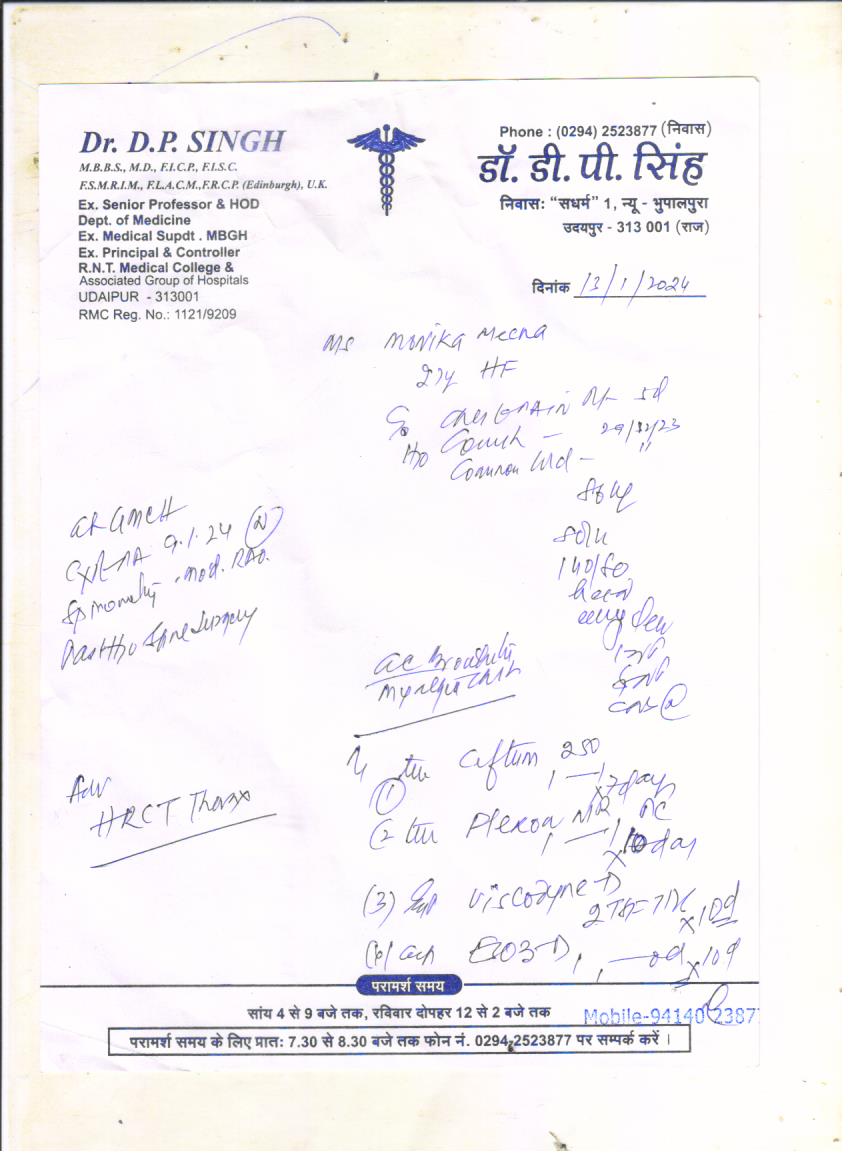 Dr. D.P. SINGH
M.B.B.S., M.D., F.I.C.P., F.I.S.C.
F.S.M.R.I.M., F.L.A.C.M.,F.R.C.P. (Edinburgh), U.K.
Ex. Senior Professor & HOD
Dept. of Medicine
Ex. Medical Supdt . MBGH
Ex. Principal & Controller
R.N.T. Medical College &
Associated Group of Hospitals
UDAIPUR - 313001
RMC Reg. No.: 1121/9209
Phone : (0294) 2523877 (निवास)
डॉ. डी. पी. सिंह
निवास: “सधर्म” 1, न्यू - भुपालपुरा
उदयपुर - 313 001 (राज)
दिनांक 13/1/2024
Ms Monika Meena
27y HF
5d
H/o Cough – 29/12/23
Common Cold – "
140/80
GMCH
CXR-PA 9.1.24 (N)
mod. RAO.
Past H/o Spine Surgery
Ac Bronchitis
Adv
HRCT Thorax
(1) Ceftum 250
1 — 1 x 7 days
(2 Plexon MR
1 — 1 x 10 day
(3) Viscodyne-D
2 TSF TDS x 10d
cap ESO3-D, 1 — od x 10d
परामर्श समय
सांय 4 से 9 बजे तक, रविवार दोपहर 12 से 2 बजे तक
Mobile-94140
परामर्श समय के लिए प्रात: 7.30 से 8.30 बजे तक फोन नं. 0294-2523877 पर सम्पर्क करें ।